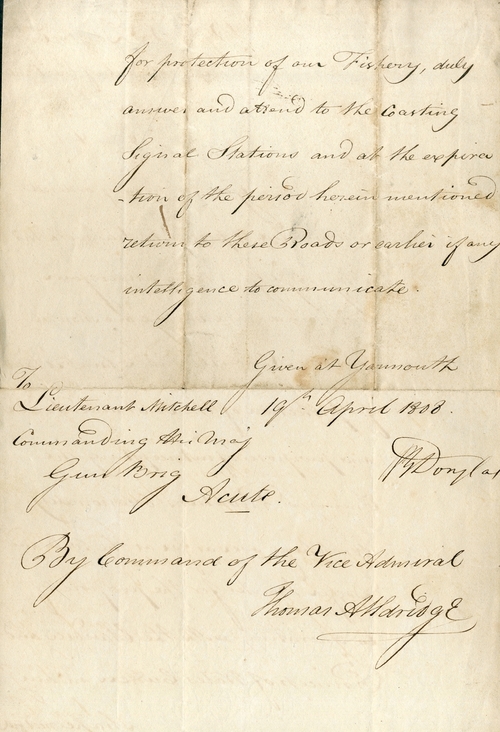 for protection of our Fishery, duly
answer and attend to the Coasting
Signal Stations and at the expira
-tion of the period herein mentioned
return to these Roads or earlier if any
intelligence to communicate.
Given at Yarmouth
To
Lieutenant Mitchell 19th April 1808.
Commanding His Maj
Gun Brig Douglas
Acute.
By Command of the Vice Admiral
Thomas Alldridge